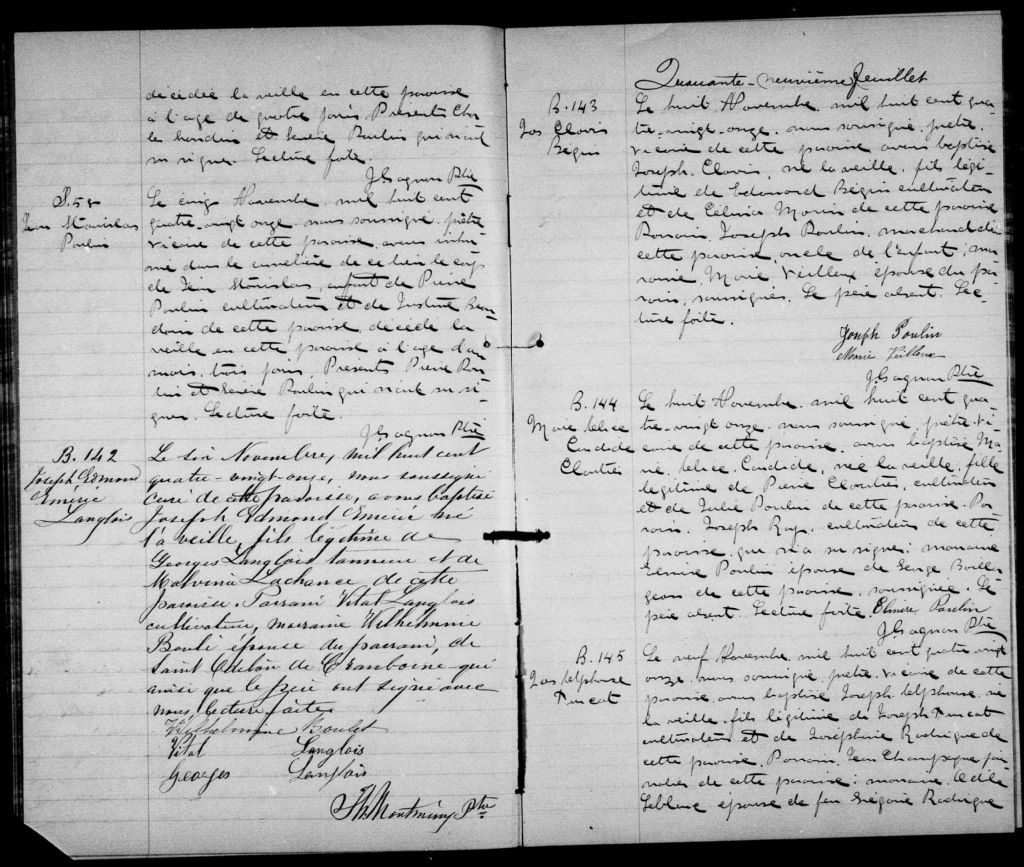 décédée la veille en cette paroisse
à l'age de quatre jours. Presents Char
le et Sévère Poulin qui n'ont
su signer. Lecture faite.
J Gagnon Ptre
S. 58
Jean Stanislas
Poulin
Le cinq Novembre mil huit cent
quatre-vingt onze nous soussigné prêtre
vicaire de cette paroisse avons inhu-
mé dans le cimetière de ce lieu le corps
de Jean Stanislas, enfant de Pierre
Poulin cultivateur et de Justine
de cette paroisse décédé la
veille en cette paroisse à l'age d'un
mois trois jours. Presents Pierre Pou-
lin et Sévère Poulin qui n'ont su si-
gner. Lecture faite.
J Gagnon Ptre
B. 142
Joseph Edmond
Emérie
Langlois
Le six Novembre, mil huit cent
quatre-vingt-onze, nous soussigné
curé de cette paroisse, avons baptisé
Joseph Edmond Emérie né
la veille, fils légitime de
Georges Langlois tanneur et de
Malvina Lachance, de cette
paroisse. Parrain Vital Langlois
cultivateur, marraine Wilhelmine
Boulé épouse du parrain, de
Saint Odilon de Cranborne qui
ainsi que le père ont signé avec
nous, lecture faite.
Wilhelmine Boulet
Vital Langlois
Georges Langlois
Montminy Ptre
Quarante-neuvième feuillet
B. 143
Jos Clovis
Bégin
Le huit Novembre mil huit cent qua-
tre-vingt-onze, nous soussigné, prêtre,
vicaire de cette paroisse avons baptisé
Joseph Clovis, né la veille, fils légi-
time de Edouard Bégin cultivateur
et de Célina Morin de cette paroisse
Parrain, Joseph Poulin, marchand de
cette paroisse, oncle de l'enfant, mar-
raine, Marie Veilleux épouse du par-
rain, soussignés. Le père absent. Lec-
ture faite.
Joseph Poulin
Marie Veilleux
J Gagnon Ptre
B. 144
Marie
Candide
Cloutier
Le huit Novembre mil huit cent qua-
tre-vingt-onze, nous soussigné, prêtre vi-
caire de cette paroisse, avons baptisé Ma-
rie, Candide, née la veille, fille
légitime de Pierre Cloutier, cultivateur
et de Julie Poulin de cette paroisse. Par-
rain, Joseph Roy, cultivateur de cette
paroisse, qui n'a su signer: marraine
Elmire Poulin épouse de
de cette paroisse, soussignée. Le
père absent. Lecture faite. Elmire Poulin
J Gagnon Ptre
B. 145
Jos Elphonse
Turcot
Le neuf Novembre mil huit cent quatre vingt
onze, nous soussigné, prêtre, vicaire de cette
paroisse avons baptisé Joseph Elphonse, né
la veille, fils légitime de Joseph Turcot
cultivateur et de Joséphine Rodrigue de
cette paroisse. Parrain, Jean Champagne jour-
nalier de cette paroisse: marraine
Leblanc épouse de feu Grégoire Rodrigue